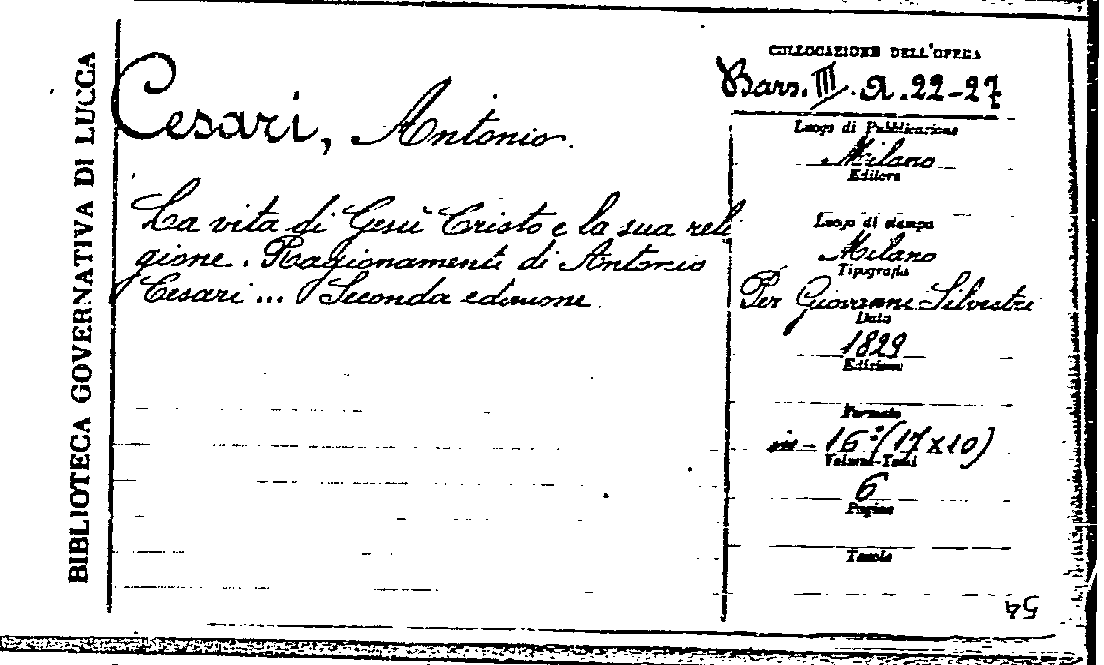 BIBLIOTECA GOVERNATIVA DI LUCCA
Cesari, Antonio.
La vita di Gesù Cristo e la sua reli
gione. Ragionamenti di Antonio
Cesari ... Seconda edizione.
COLLOCAZIONE DELL'OPERA
Bars. III. A. 22-27
Luogo di Pubblicazione
Milano
Editore
Luogo di stampa
Milano
Tipografia
Per Giovanni Silvestri
Data
1829
Edizione
Formato
in-16°(17x10)
Volumi-Tomi
6
Pagine
Tavole
54